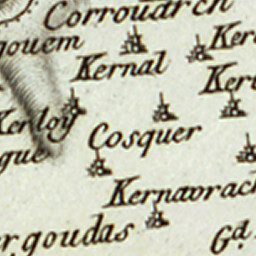 Corrouarch
gouem
Ker
Kernal
Ker
Kerloy
Cosquer
gue
Kernavrach
rgoudas
Gd.